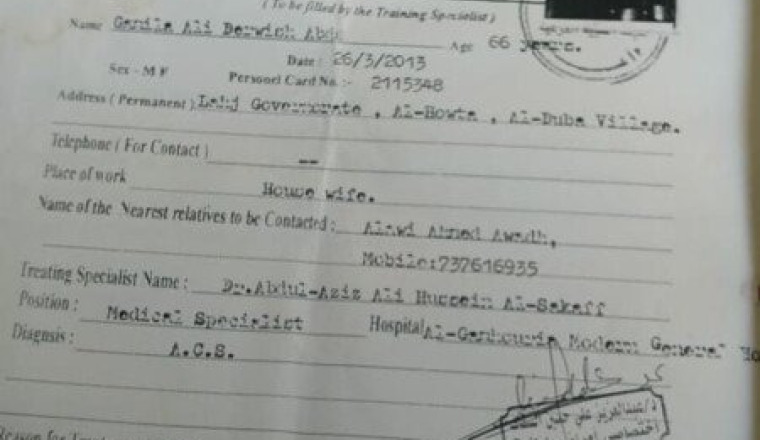 (To be filled by the Training Specialist)
Name Ali Derwish Age 66 years.
Date: 26/3/2013
Sex - M F Personel Card No. :- 2115348
Address (Permanent) Lahj Governorate, Al-Howta, Al-Duba Village.
Telephone (For Contact) --
Place of work House wife.
Name of the Nearest relatives to be Contacted: Alawi Ahmed Awadh,
Mobile:737616935
Treating Specialist Name: Dr.Abdul-Aziz Ali Hussein Al-Sakaff
Position: Medical Specialist Hospital Modern General
Diagnosis: A.C.S.
Reason for